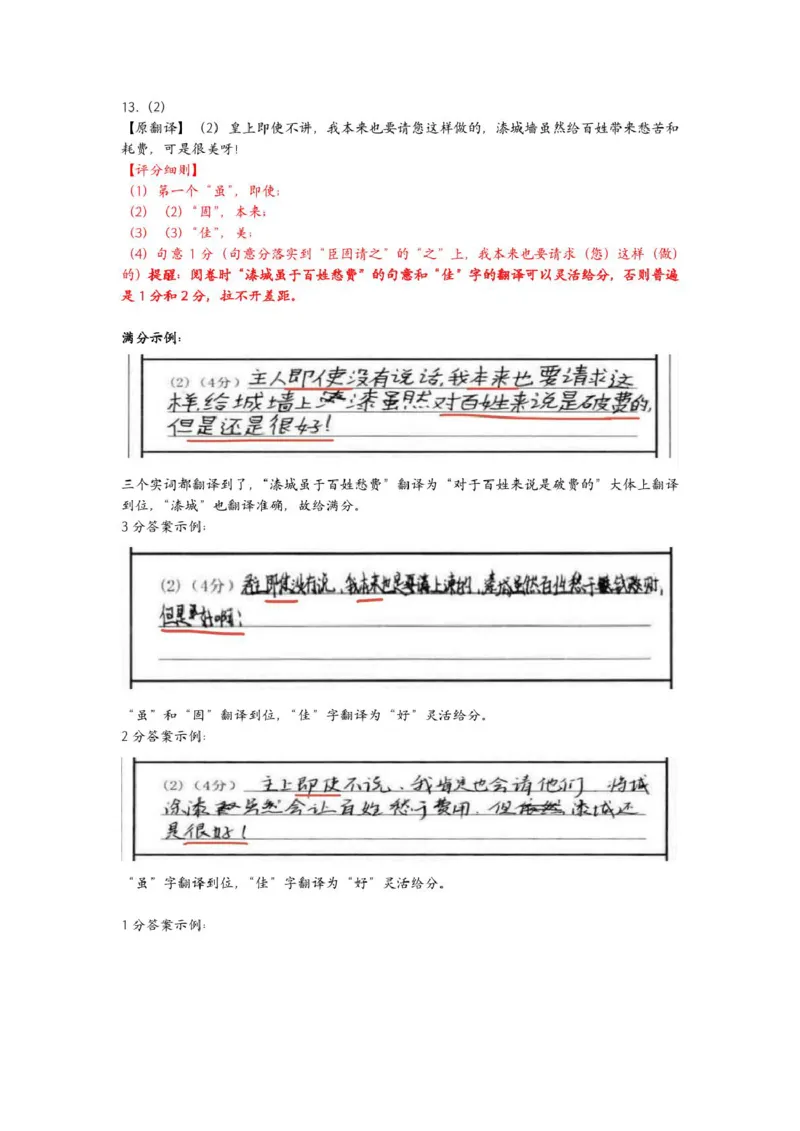 13.（2）
【原翻译】（2）皇上即使不讲，我本来也要请您这样做的，漆城墙虽然给百姓带来愁苦和
耗费，可是很美呀！
【评分细则】
（1）第一个“虽”，即使；
（2）（2）“固”，本来；
（3）（3）“佳”，美；
（4）句意 1 分（句意分落实到“臣固请之”的“之”上，我本来也要请求（您）这样（做）
的）提醒：阅卷时“漆城虽于百姓愁费”的句意和“佳”字的翻译可以灵活给分，否则普遍
是 1 分和 2 分，拉不开差距。
满分示例：
（2）（4分）主人即使没有说话，我本来也要请求这
样，给城墙上漆虽然对百姓来说是破费的，
但是还是很好！
三个实词都翻译到了，“漆城虽于百姓愁费”翻译为“对于百姓来说是破费的”大体上翻译
到位，“漆城”也翻译准确，故给满分。
3 分答案示例：
（2）（4分）即使没有说，我本来也是要请上谏的，
但是更好啊！
“虽”和“固”翻译到位，“佳”字翻译为“好”灵活给分。
2 分答案示例：
（2）（4分）主上即使不说、我肯定也会请他们 将城
涂漆 虽然会让百姓愁于费用，但 漆城还
是很好！
“虽”字翻译到位，“佳”字翻译为“好”灵活给分。
1 分答案示例：